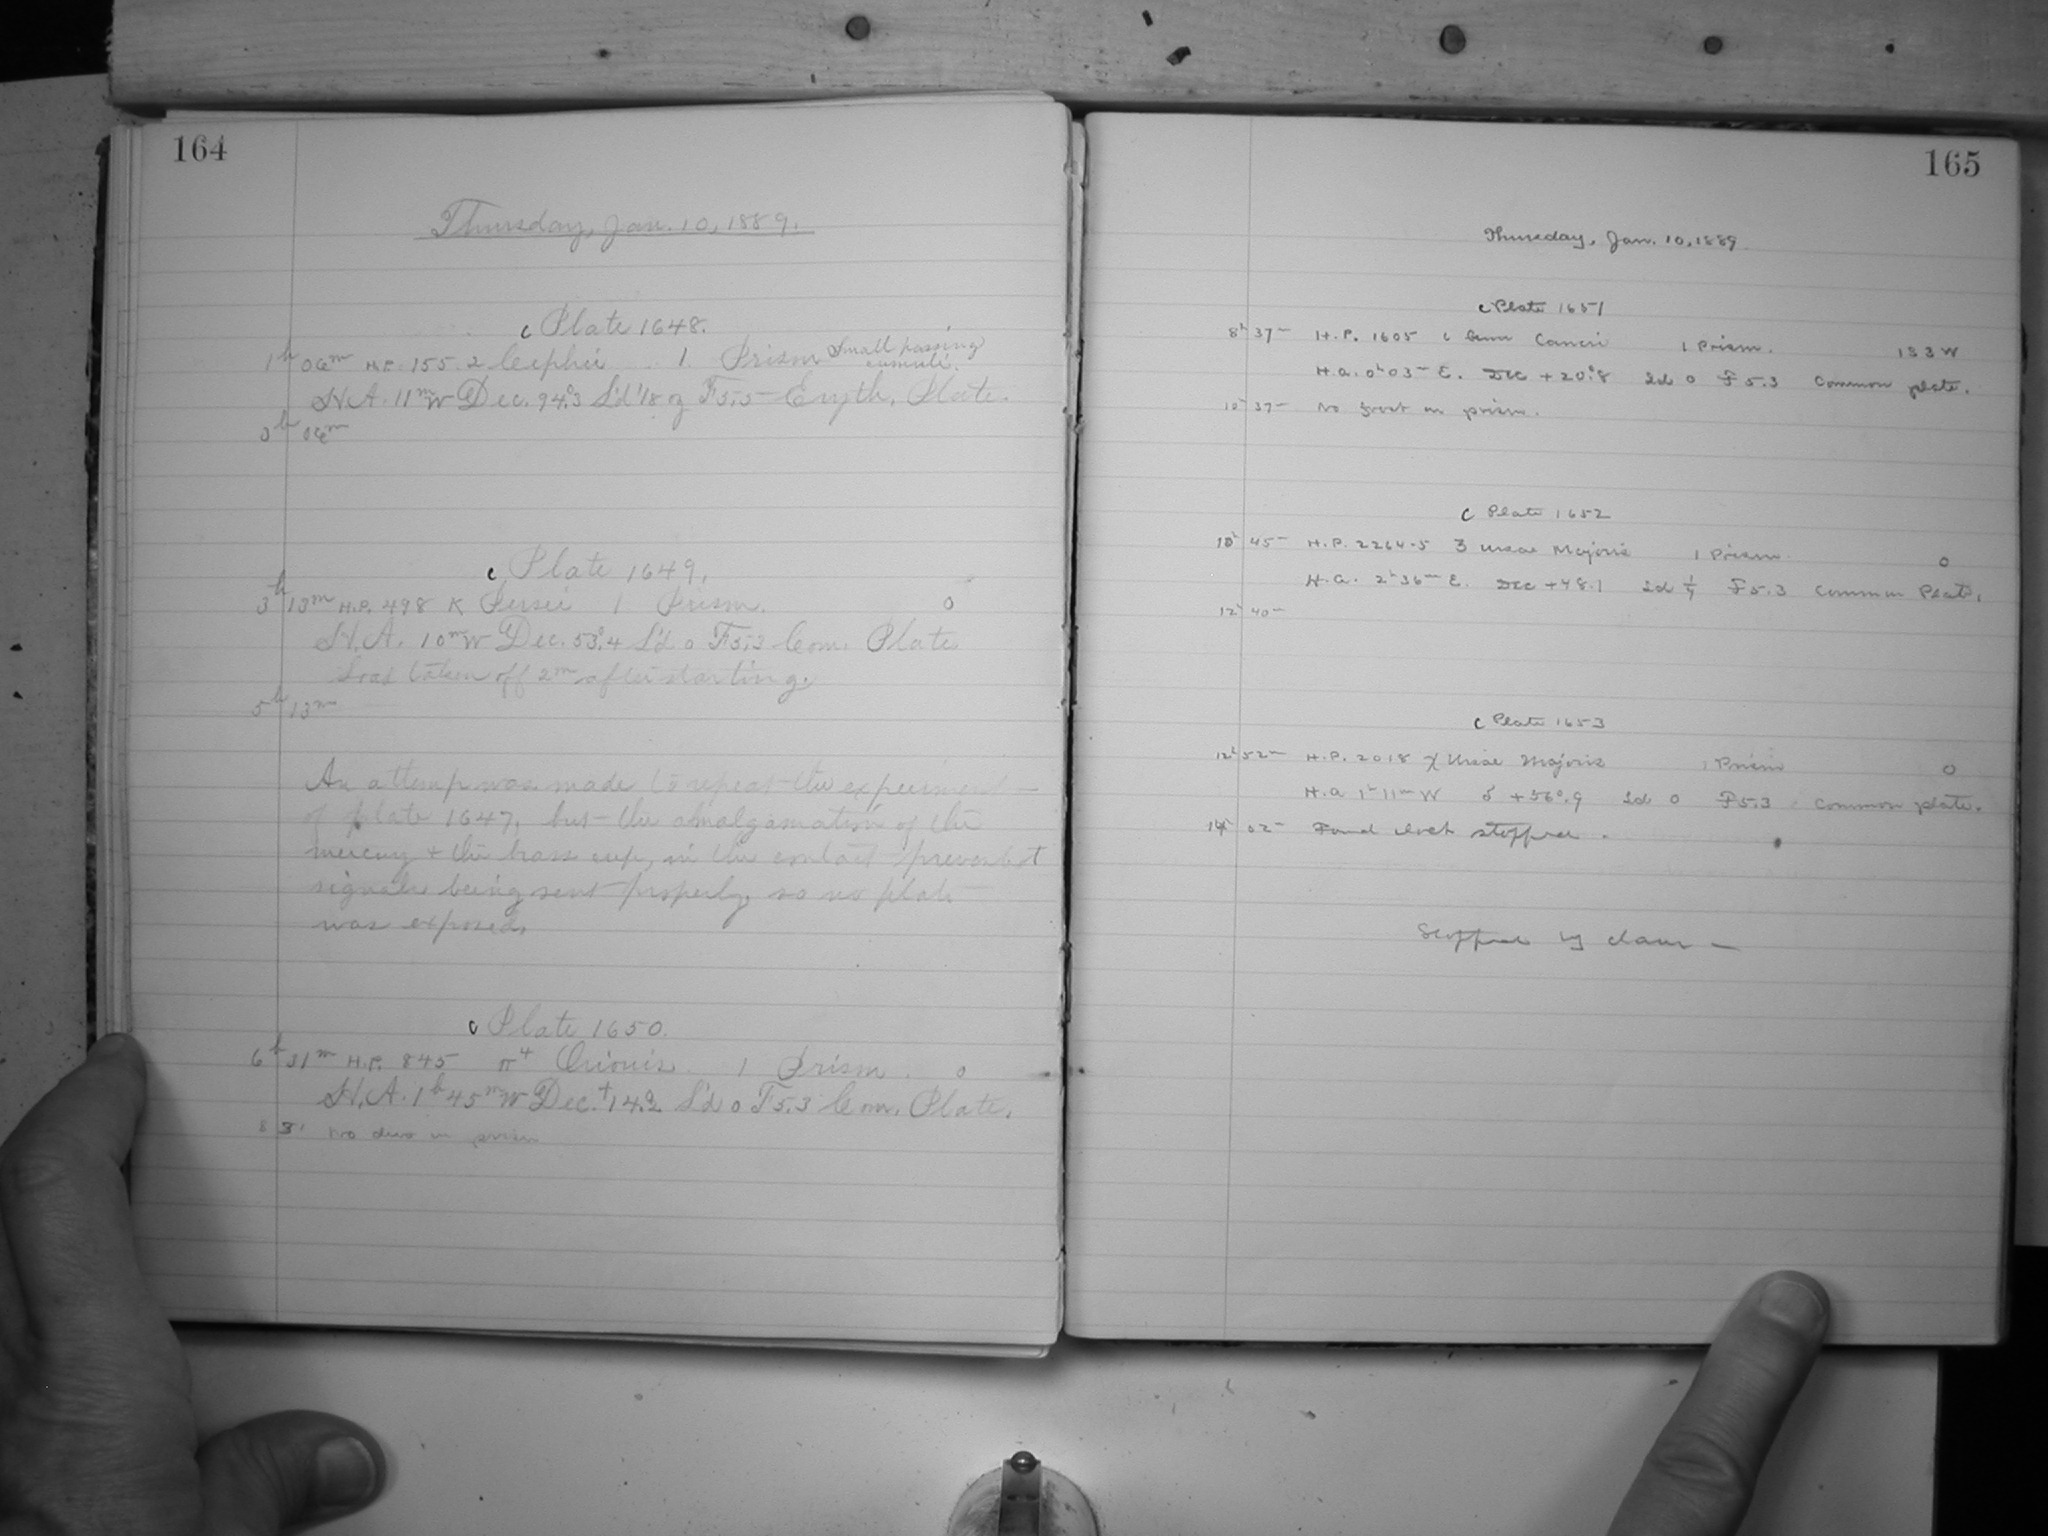 164
Thursday, Jan. 10, 1889.
c Plate 1648.
1h 06m H.P. 155. 2 Cephei 1. Prism Small passing
cumuli.
H.A. 11m W Dec. 94°.3 S'd F5.5 Eryth. Plate.
3h 06m
c Plate 1649.
3h 13m H.P. 498 K Persei 1 Prism. 0
H.A. 10m W Dec. 53°.4 S'd 0 F5.3 Com. Plate
taken off 2m after starting.
5h 13m
An attemp was made to repeat the experiment
of plate 1647, but the amalgamation of the
mercury + the brass cup, in the contact prevented
signals being sent properly, so no plate
was exposed.
c Plate 1650.
6h 31m H.P. 845 π4 Orionis. 1 Prism. 0
H.A. 1h 45m W Dec. +14.2 S'd 0 F5.3 Com. Plate.
8 31 No dew on prism
165
Thursday, Jan. 10, 1889
c Plate 1651
8h 37m H.P. 1605 Cancri 1 Prism. 133 W
H.A. 0h 03m E. Dec +20°.8 Sd 0 F5.3 Common plate.
10h 37m No frost on prism.
c Plate 1652
10h 45m H.P. 2264.5 3 Ursae Majoris 1 Prism. 0
H.A. 2h 36m E. Dec +48.1 Sd F5.3 Common Plate.
12h 40m
c Plate 1653
12h 52m H.P. 2018 χ Ursae Majoris 1 Prism 0
H.A. 1h 11m W δ +56°.9 Sd 0 F5.3 Common plate.
14h 02m Found clock stopped.
Stopped by